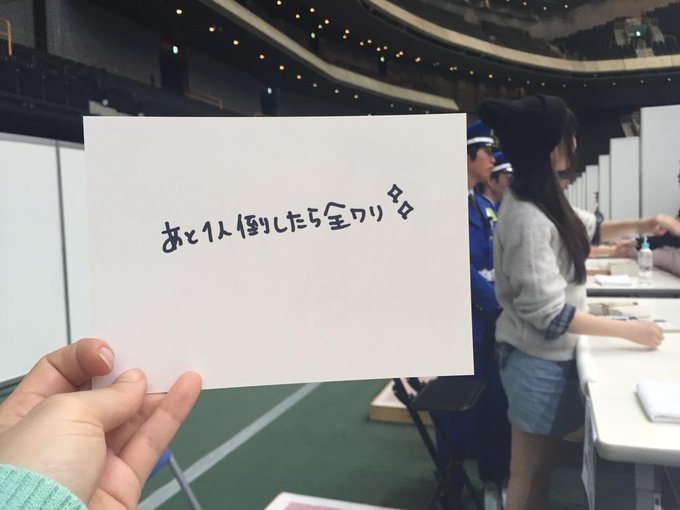 あと1人倒したら全クリ